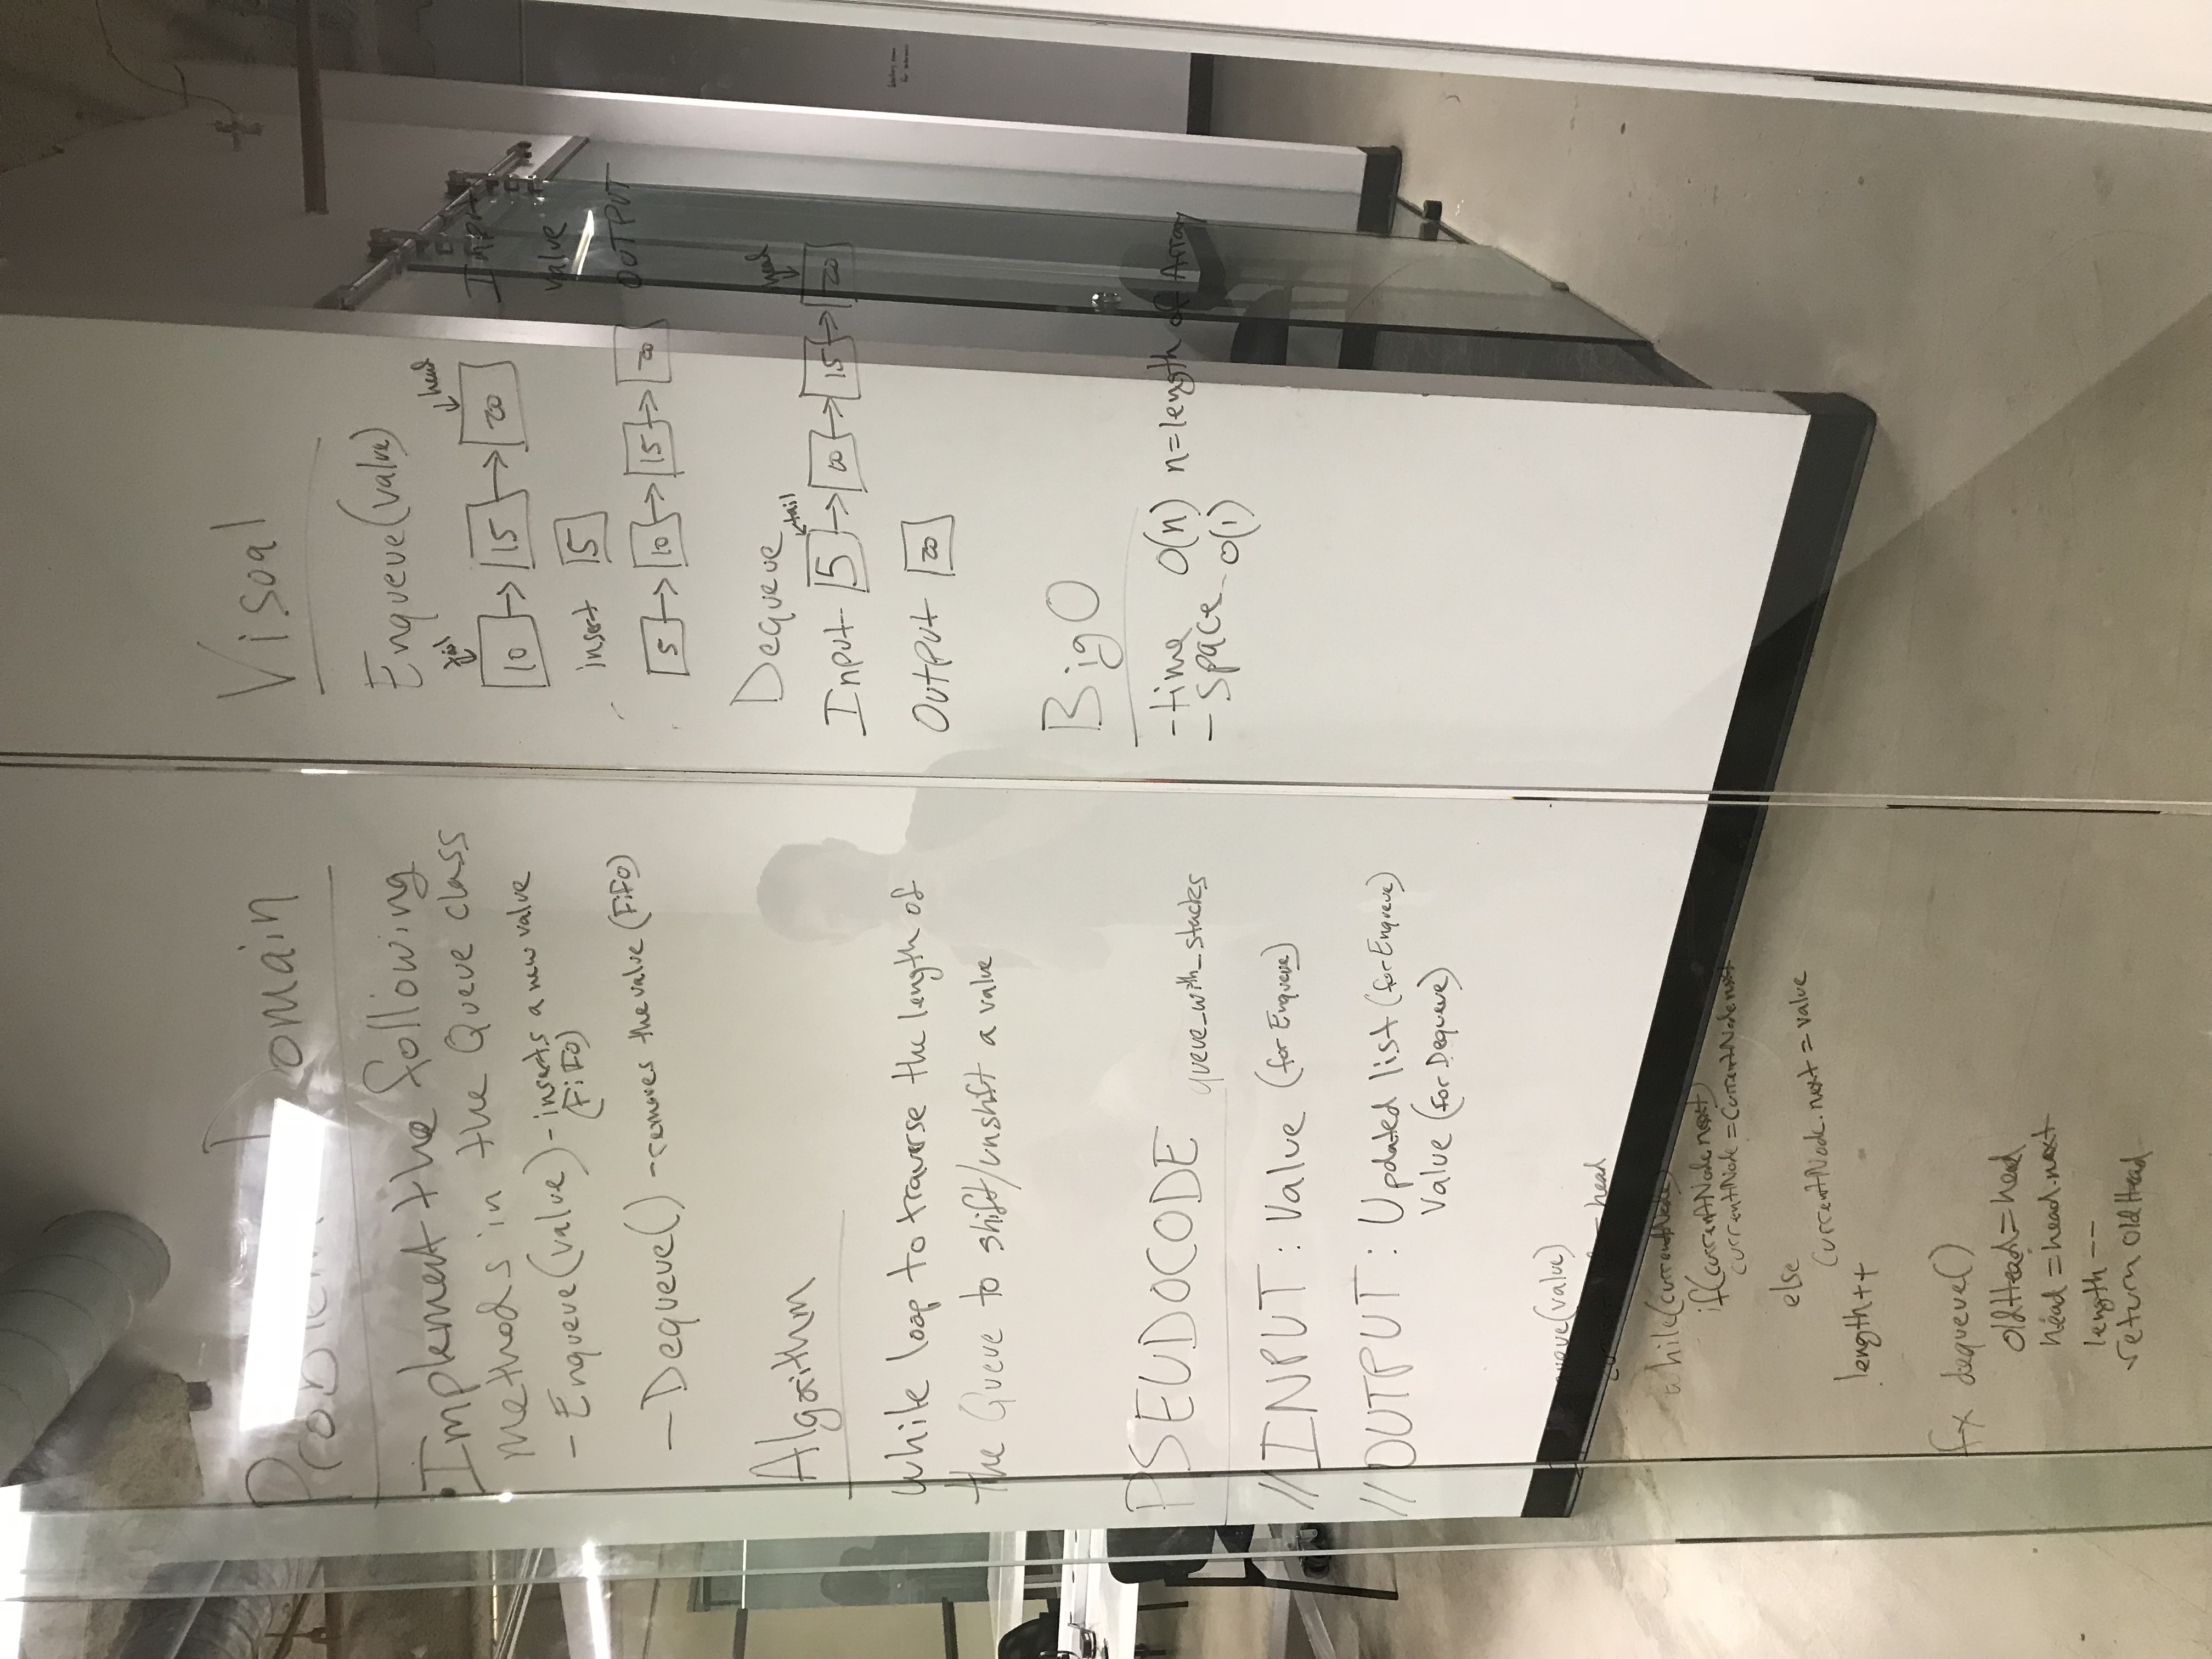 Problem Domain
Implement the following
methods in the Queue class
- Enqueue(value) - inserts a new value
(FiFo)
- Dequeue() - removes the value (FiFo)
Algorithm
while loop to traverse the length of
the Queue to shift/unshift a value
PSEUDOCODE queue_with_stacks
// INPUT: Value (for Enqueue)
// OUTPUT: Updated list (for Enqueue)
Value (for Dequeue)
enqueue(value)
= head
while(currentNode)
if(currentNode.next)
currentNode = currentNode.next
else
currentNode.next = value
length++
fx dequeue()
oldHead = head
head = head.next
length --
return oldHead
Visoal
Enqueue(value)
tail head
10 → 15 → 20
insert 5
5 → 10 → 15 → 20
Input
value
OUTPUT
Dequeue
tail head
Input 5 → 10 → 15 → 20
Output 20
Big O
- time O(n) n = length of Array
- space O(1)